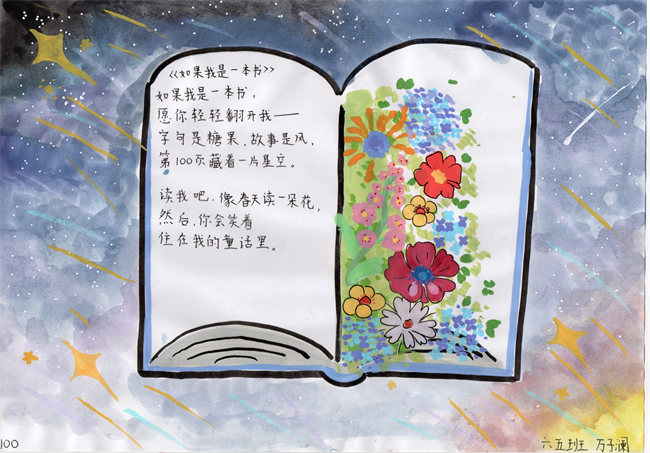 《如果我是一本书》
如果我是一本书，
愿你轻轻翻开我——
字句是糖果，故事是风，
第100页藏着一片星空。
读我吧，像春天读一朵花，
然后，你会笑着
住在我的童话里。
100
六五班 万子澜